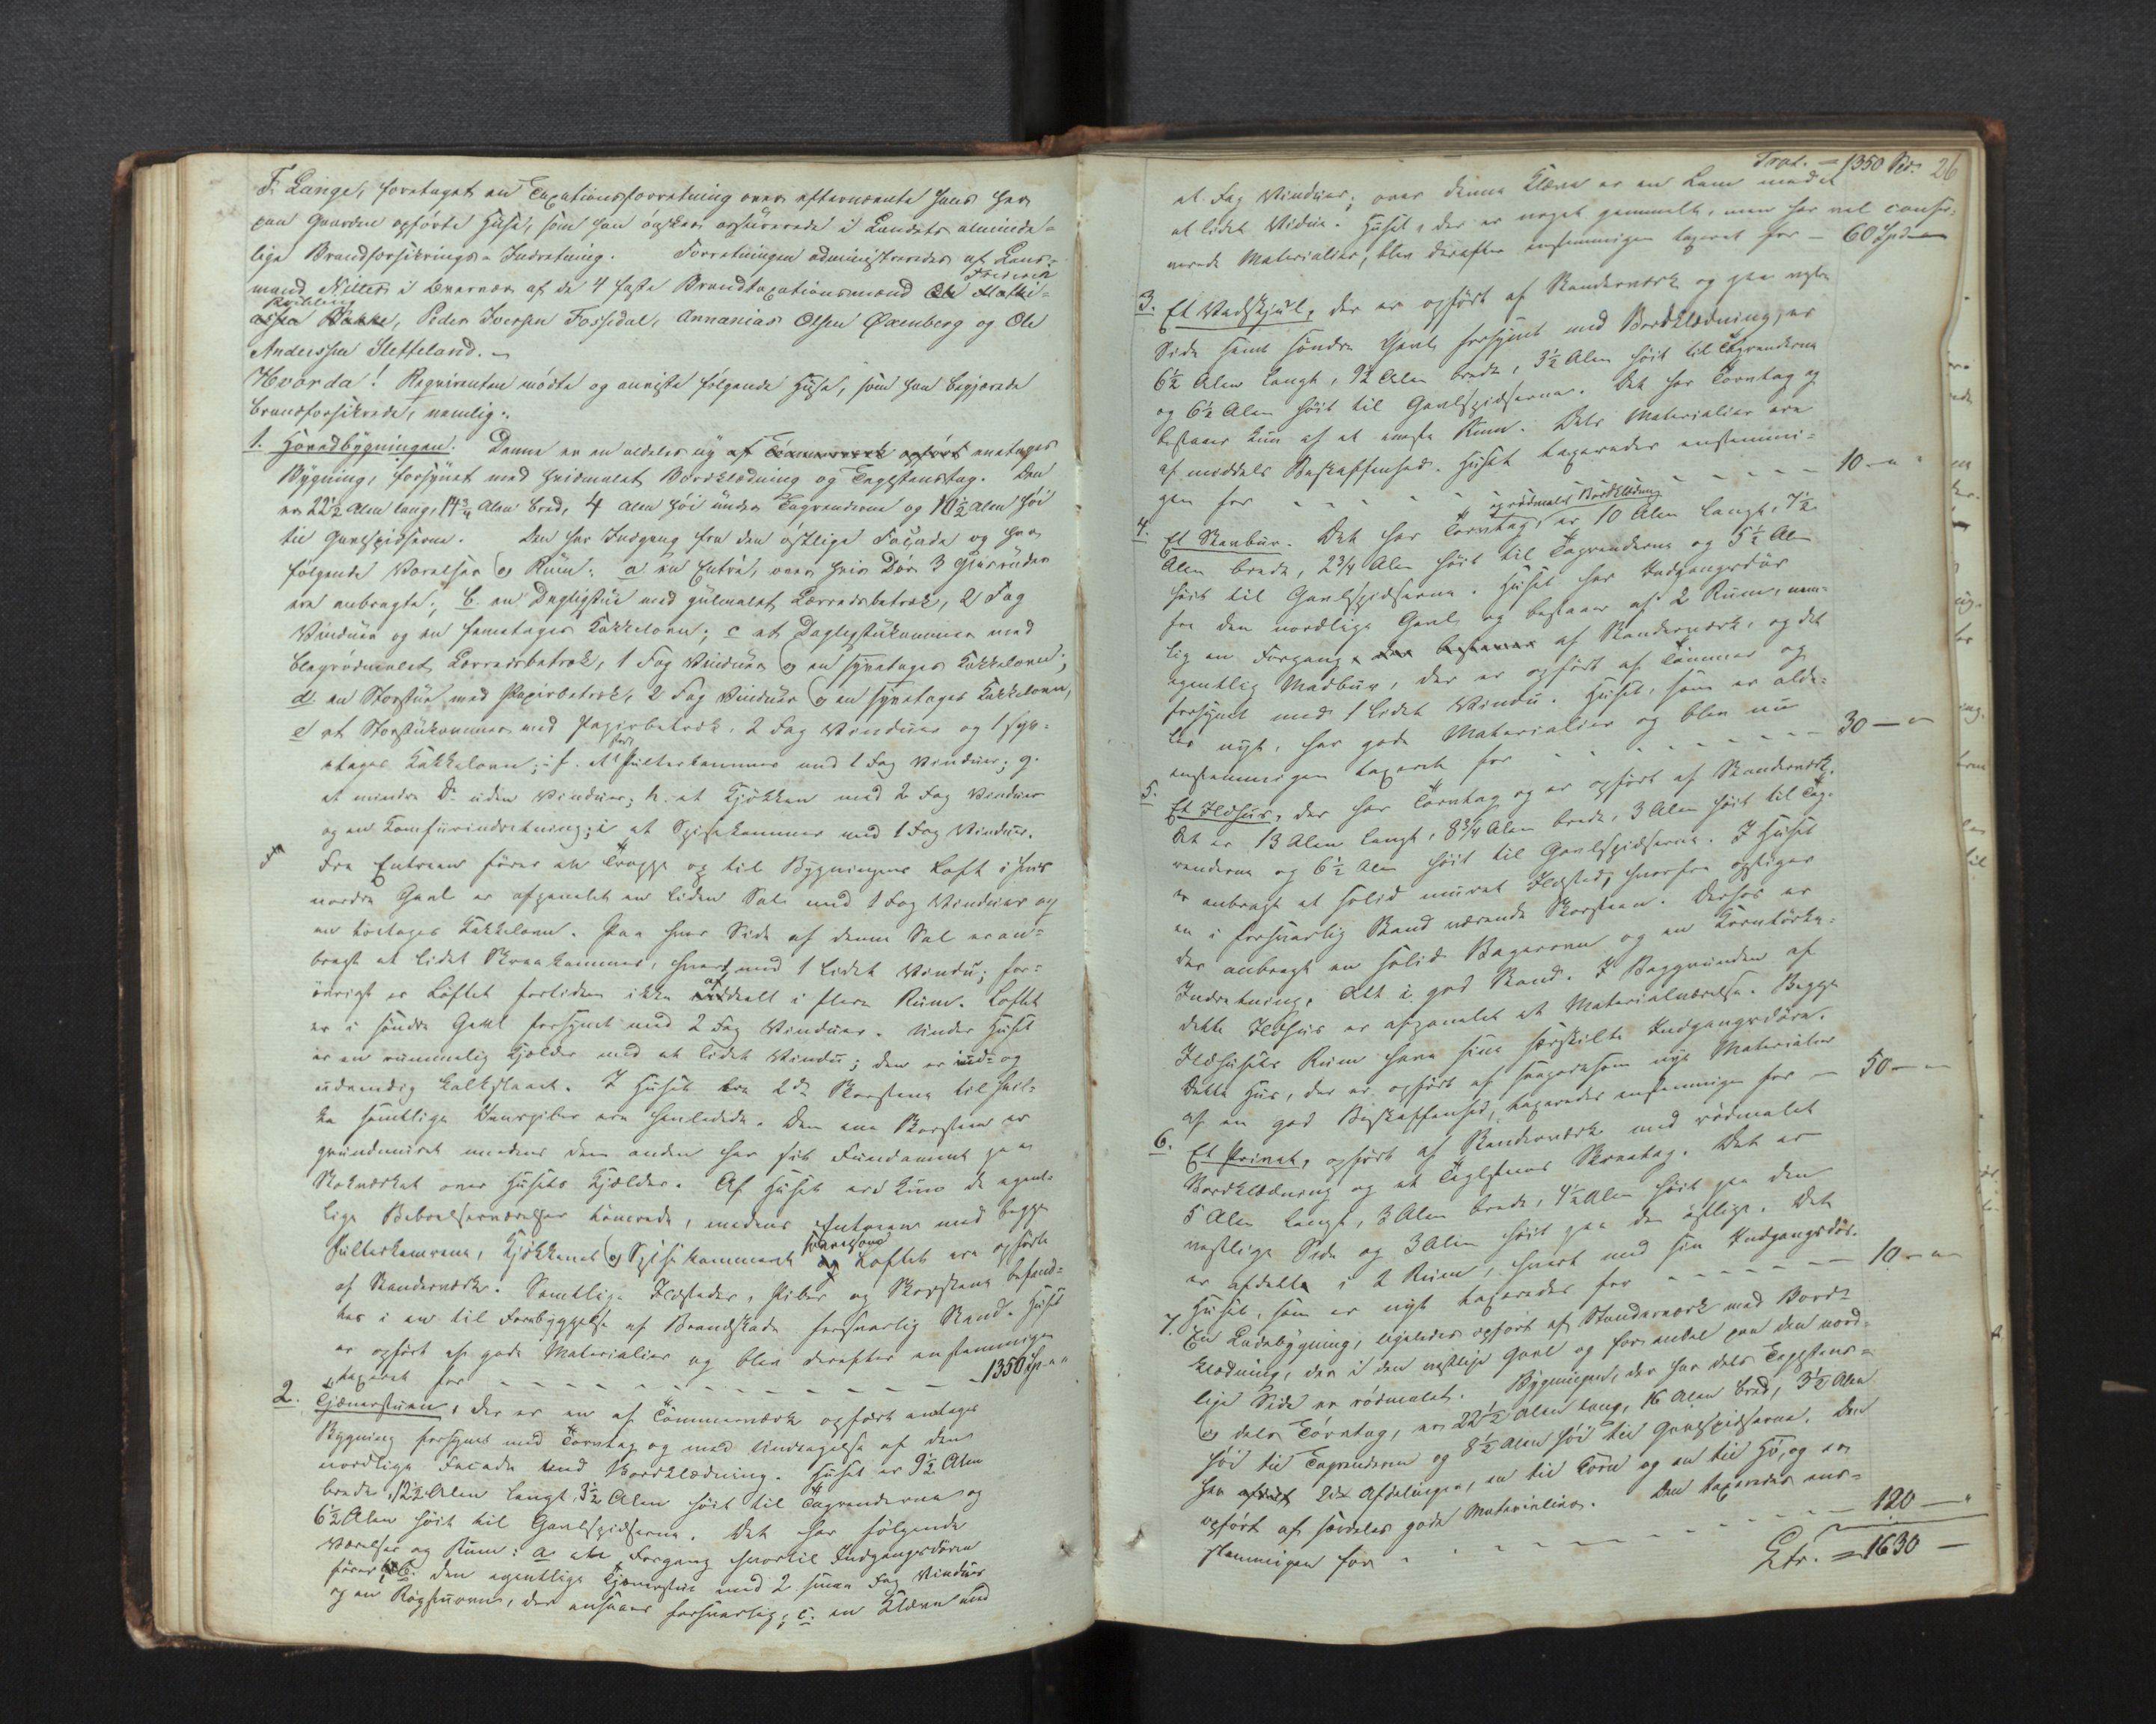 F. Lange, foretaget en Taxationsforretning over efternævnte Hans her
paa Gaarden opførte Huse, som han ønsker assurerede i Landets alminde-
lige Brandforsikrings-Indretning. Forretningen administreredes af Lens-
mand i af de 4 faste Brandtaxationsmænd Ole Frederik
Peder Iversen Fossedal, Annanias Olsen Oxenberg og Ole
Andersen Sletteland. -
Hvorda! Reqvirenten mødte og anviste følgende Huse, som han begjærede
brandforsikrede, nemlig:
1. Hovedbygningen. Denne er en aldeles ny af Tømmerværk opført eenetages
Bygning, forsynet med hvidmalet Bordklædning og Teglsteenstag. Den
er 22½ Alen lang, 14¾ Alen bred, 4 Alen høi under Tagrenderne og 10½ Alen høi
til Gavlspidserne. Den har Indgang fra den østlige Façade og har
følgende Værelser og Rum: a en Entré, over hvis Dør 3 Glasruder
ere anbragte; b. en Dagligstue med guulmalet Lærredsbetræk, 2 Fag
Vinduer og en femetages Kakkelovn; c et Dagligstuekammer med
blegrødmalet Lærredsbetræk, 1 Fag Vinduer og en Kakkelovn;
d en Storstue med Papirbetræk, 2 Fag Vinduer og en Kakkelovn,
e et Storstuekammer med Papirbetræk, 2 Fag Vinduer og 1
etages Kakkelovn; f. et stort Pulterkammer med 1 Fag Vinduer; g.
et mindre Do uden Vinduer; h. et Kjøkken med 2 Fag Vinduer
og en Komfurindretning; i et Spisekammer med 1 Fag Vinduer.
Fra Entreen fører en Trappe op til Bygningens Loft i hvis
nordre Gavl er afpanelet en liden Sal med 1 Fag Vinduer og
en toetages Kakkelovn. Paa hver Side af denne Sal er an-
bragt et lidet Skraakammer, hvert med 1 lidet Vindu; for-
øvrigt er Loftet fortiden ikke afdeelt i flere Rum. Loftet
er i søndre Gavl forsynet med 2 Fag Vinduer. Under Huset
er en rummelig Kjælder med et lidet Vindu; den er ind- og
udvendig kalkslaaet. I Huset ere 2de Skorstene til hvil-
ke samtlige Damppiber ere henledede. Den ene Skorsteen er
grundmuret medens den anden har sit Fundament paa
Stokværket over Husets Kjælder. Af Huset ere kun de egent-
lige Beboelsesværelser tømrede, medens Entreen med begge
Pulterkamrene, Kjøkkenet og Spisekammeret Loftet ere opførte
af Standerværk. Samtlige Ildsteder, Piber og Skorstene befand-
tes i en til Forebyggelse af Brandskade forsvarlig Stand. Huset
er opført af gode Materialier og blev derefter enstemmigen
taxeret for - - - - - - - - - - 1350 Sp „ „
2. Tjænerstuen, der er en af Tømmerværk opført eenetages
Bygning forsynet med Torvtag og med Undtagelse af den
nordlige Facade med Bordklædning. Huset er 9½ Alen
bredt, 12½ Alen langt 3½ Alen høit til Tagrenderne og
6½ Alen høit til Gavlspidserne. Det har følgende
Værelser og Rum: a en Forgang hvortil Indgangsdøren
fører, b. den egentlige Tjænerstue med 2 smaa Fag Vinduer
og en Røghueovn, der ansaaes forsvarlig; c. en Kleve med
Trsp. - 1350 Spd. 26
et Fag Vinduer; over denne Kleve er en Lem med
et lidet Vidue. Huset, der er noget gammelt, men har vel conser-
verede Materialier, blev derefter enstemmigen taxeret for - 60 Spd. -
3. Et Vedskjul, der er opført af Standerværk og paa
Side samt søndre Gavl forsynet med Bordklædning, er
6½ Alen langt, 9½ Alen bredt, 3½ Alen høit til Tagrenderne
og 6½ Alen høit til Gavlspidserne. Det har Torvtag og
bestaaer kun af et eneste Rum. Dets Materialier ere
af middels Beskaffenhed. Huset taxeredes enstemmi-
gen for - - - - - - - - 10 - „
og rødmalet Bordklædning
4. Et Stabur. Det har Torvtag, er 10 Alen langt, 7½
Alen bredt, 2¾ Alen høit til Tagrenderne og 5½ Alen
høit til Gavlspidserne. Huset har Indgangsdør
fra den nordlige Gavl og bestaaer af 2 Rum, nem-
lig en Forgang, der bestaaer af Standerværk, og det
egentlig Madbur, der er opført af Tømmer og
forsynet med 1 lidet Vindu. Huset, som er alde-
les nyt, har gode Materialier og blev nu
enstemmigen taxeret for - - - - - - - 30 - „
5. Et Ildhus, der har Torvtag og er opført af Standerværk.
Det er 13 Alen langt, 8¾ Alen bredt, 3 Alen høit til Tag-
renderne og 6½ Alen høit til Gavlspidserne. I Huset
er anbragt et solid muret Ildsted, hvorfra opstiger
en i forsvarlig Stand værende Skorsteen. Derhos er
der anbragt en solid Bagerovn og en Korntørke-
Indretning, Alt i god Stand. I Baggrunden af
dette Ildhus er afpanelet et Materialværelse. Begge
Ildhusets Rum have sine særskilte Indgangsdøre.
Dette Hus, der er opført af saagodtsom nye Materialier
af en god Beskaffenhed, taxeredes enstemmigen for - 50 - „
6. Et Privat, opført af Standerværk med rødmalet
Bordklædning og et Teglsteens Skraatag. Det er
5 Alen langt, 3 Alen bredt, 4½ Alen høit paa den
vestlige Side og 3 Alen høit paa den østlige. Det
er afdelt i 2 Rum, hvert med sin Indgangsdør.
Huset, som er nyt taxeredes for - - - - - - 10 - „
7. En Ladebygning, ligeledes opført af Standerværk med Bord-
klædning, der i den vestlige Gavl og for endeel paa den nord-
lige Side er rødmalet. Bygningen, der har dels Teglsteens-
og dels Torvtag, er 22½ Alen lang, 16 Alen bred, 3½ Alen
høi til Tagrenderne og 8½ Alen høi til Gavlspidserne. Den
har 2de Afdelinger, en til Korn og en til Hø, og er
opført af særdeles gode Materialier. Den taxeredes een-
stemmigen for - - - - - - - 120 - „
Ltr. = 1630 -